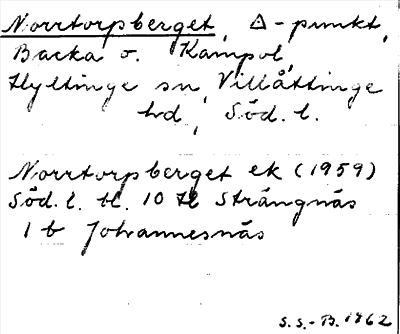 Norrtorpsberget, △-punkt,
Backa o. Kampol,
Hyltinge sn, Villåttinge
hd, Söd. l.
Norrtorpsberget ek (1959)
Söd. l. bl. 10 H Strängnäs
1 b Johannesnäs
S.S.-B. 1962